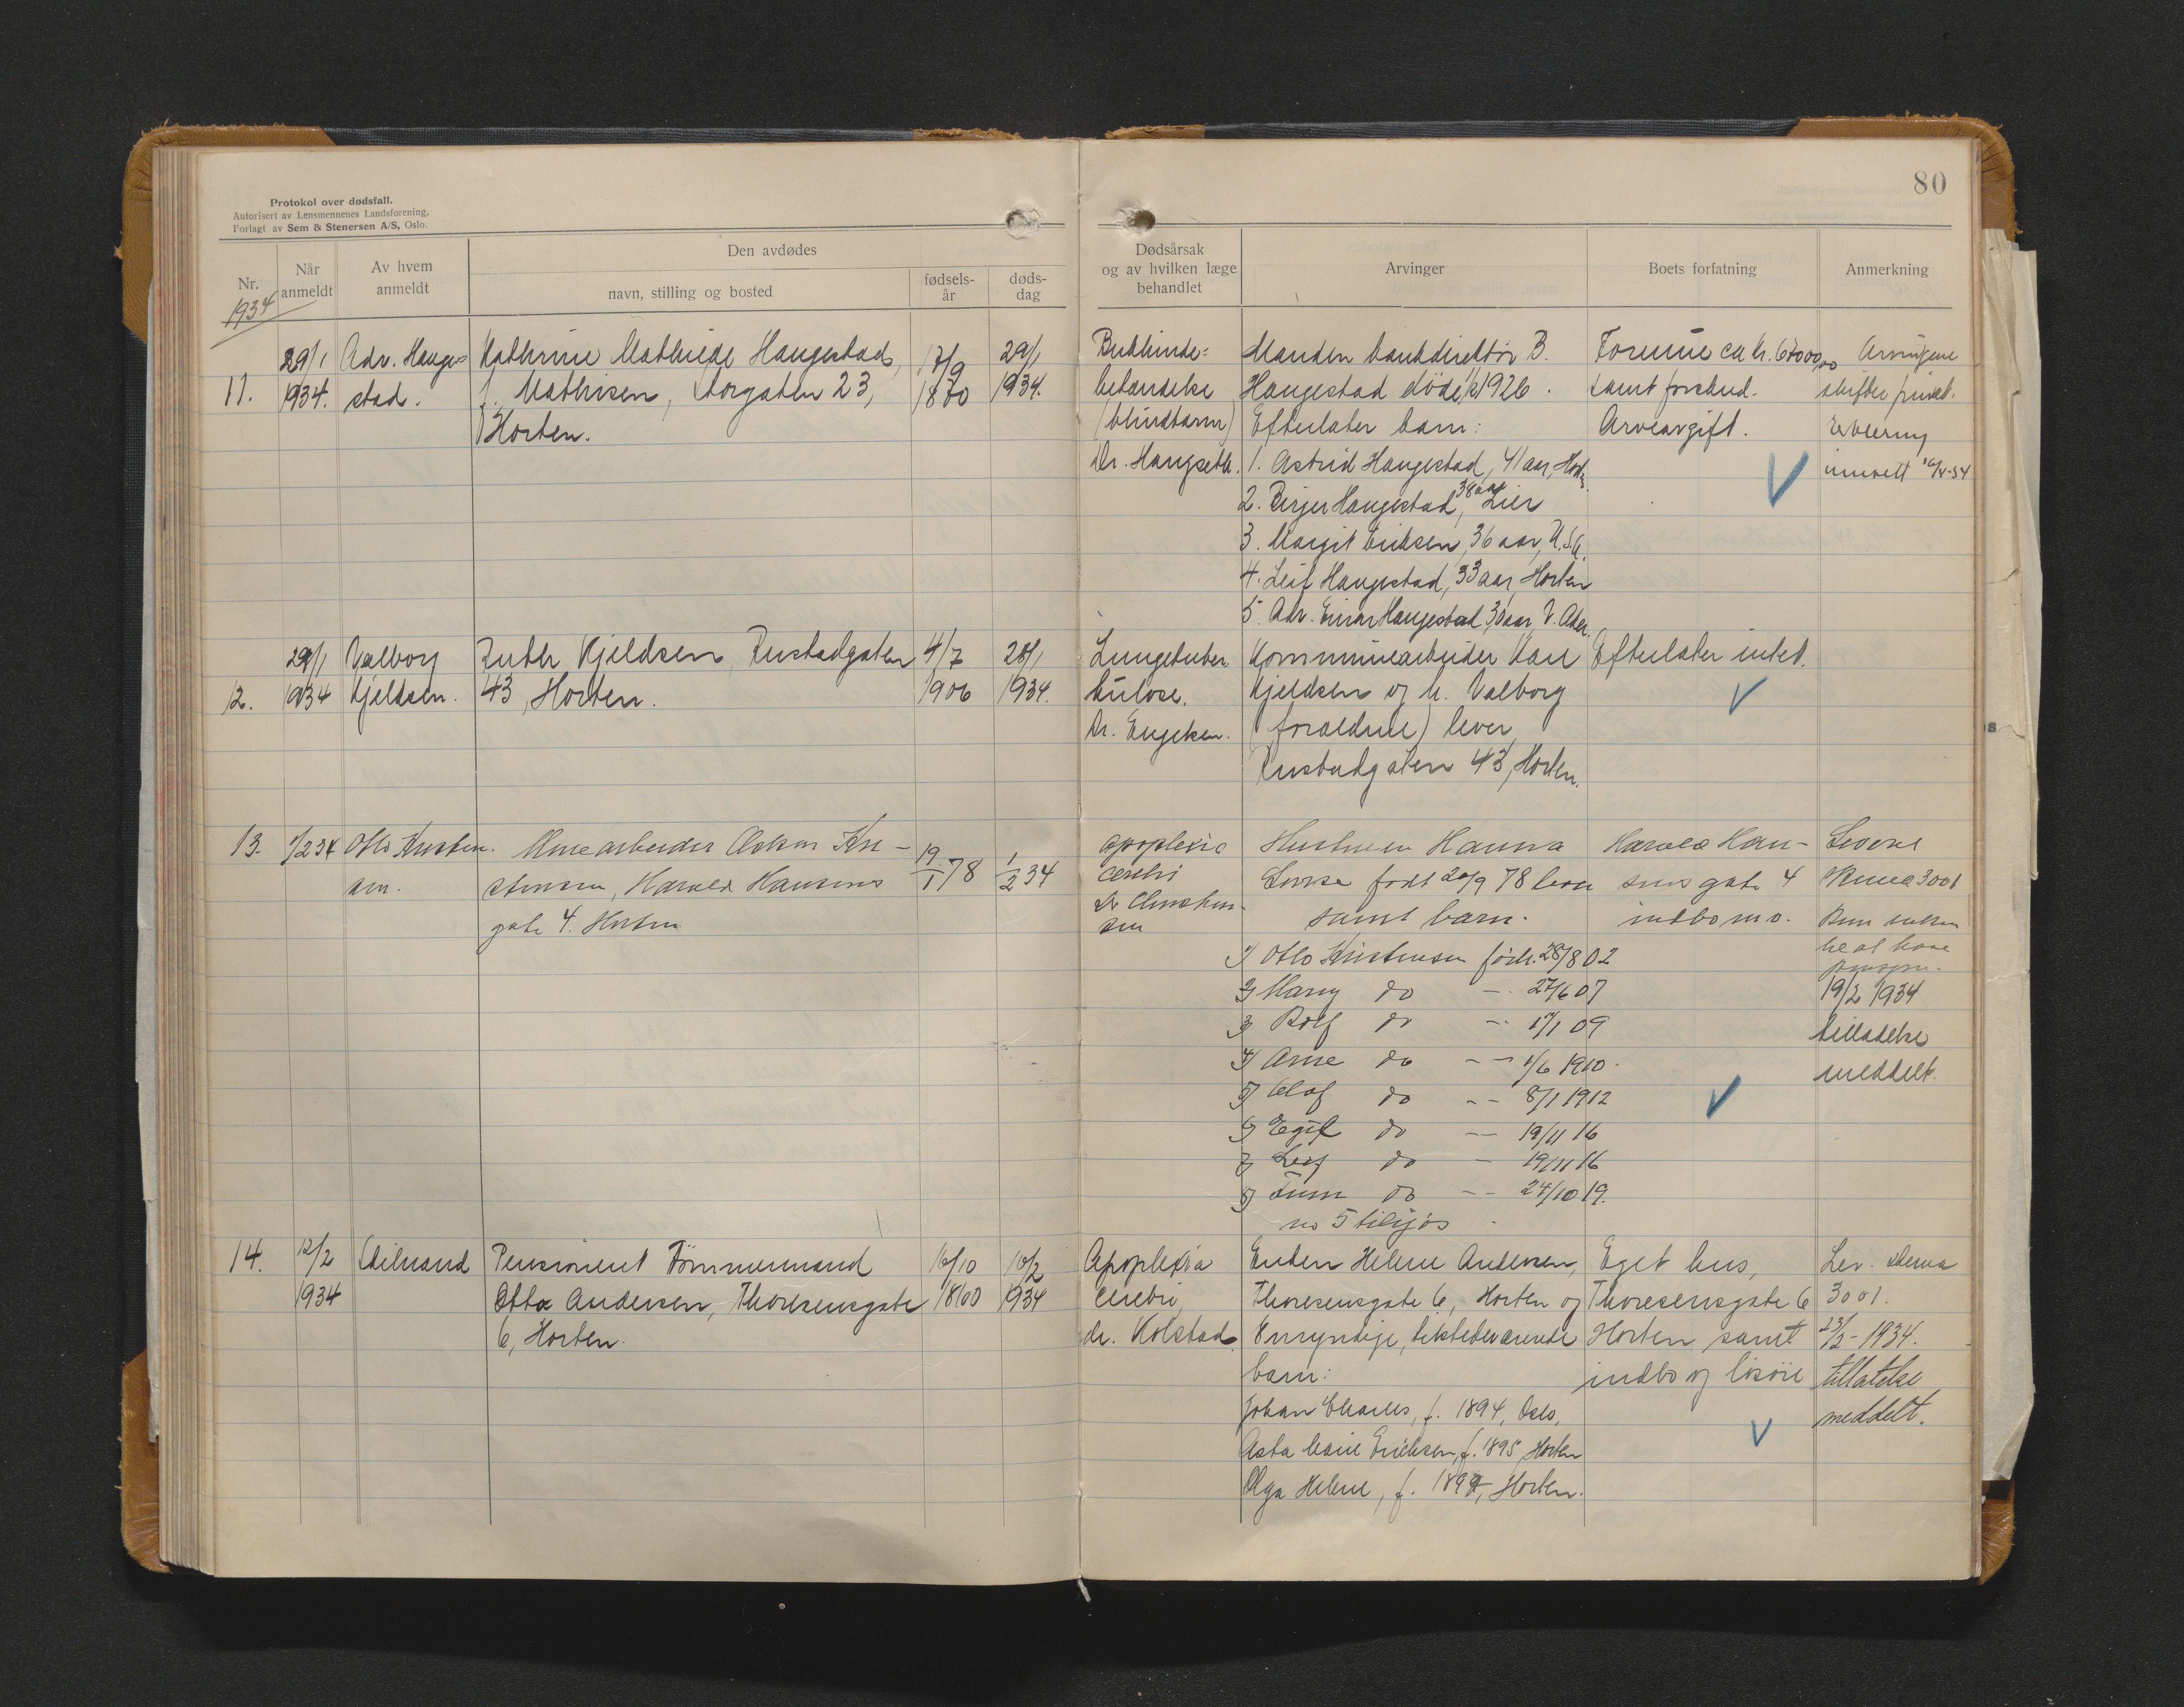 80
Protokol over dødsfall.
Autorisert av Lensmennenes Landsforening.
Forlagt av Sem & Stenersen A/S, Oslo.
Nr.
Når anmeldt
Av hvem anmeldt
Den avdødes
navn, stilling og bosted
fødsels-år
døds-dag
Dødsårsak og av hvilken læge behandlet
Arvinger
Boets forfatning
Anmerkning
1934
11.
29/1
1934.
Adv. Hauge-
stad.
Kathrine Mathilde Haugestad,
f. Mathisen, Storgaten 23,
Horten.
17/9
1870
29/1
1934.
Bukhinde=
betændelse
(blindtarm)
Dr. Haugseth.
Manden bankdirektør B.
Haugestad døde 1926.
Efterlater barn:
1. Astrid Haugestad, 41 aar, Hort.
2. Birger Haugestad, 38 aar Lier
3. Margit Eriksen, 36 aar, U.S.A.
4. Leif Haugestad, 33 aar, Horten
5. Adv. Einar Haugestad 30 aar V. Aker.
Formue ca kr. 67000,00
samt forskud.
Arveavgift.
Arvingene
skifter privat.
Erklering
innsett
12.
29/1
1934
Valborg
Kjeldsen.
Ruth Kjeldsen, Rustadgaten
43, Horten.
4/7
1906
28/1
1934.
Lungetuber
kulose.
Dr. Engelsen.
Kommunearbeider Karl
Kjeldsen og h. Valborg
(foraeldrene) lever
Rustadgaten 43, Horten.
Efterlater intet.
13.
1/2 34
Otto Kristen-
sen.
Minearbeider Oskar Kri-
stensen, Harald Hansens
gate 4. Horten
19/1 78
1/2 34
apoplexia
cerebri
Dr Christen-
sen
Hustruen Hanna
Lovise født 20/9 78 lever
samt barn.
1) Otto Kristensen født. 28/8 02
2) Harry do - 27/6 07
3) Rolf do - 17/1 09
4) Arne do - 1/6 1910.
5) Olaf do - 8/1 1912
6) Egil do - 19/11 16
7) Leif do - 19/11 16
8) Finn do - 24/10 19.
no 5 tilsjøs
Harald Han-
sens gate 4
indbo m.v.
Levert
skema 3001
19/2 1934
tilladelse
meddelt.
14.
12/2
1934
Skilmand
Pensionert Tømmermand
Otto Andersen, Thoresensgate
6, Horten.
16/10
1860
10/2
1934
Apoplexia
cerebri,
dr. Kolstad.
Enken Helene Andersen,
Thoresensgate 6, Horten og
Emyndige, tilstedeværende
barn:
Johan Charles, f. 1894, Oslo,
Asta Marie Erichsen, f. 1895, Horten
Olga Helene, f. 1899, Horten.
Eget hus,
Thoresensgate 6
Horten samt
indbo og løsøre
Lev. skema
3001.
23/2-1934.
tillatelse
meddelt.